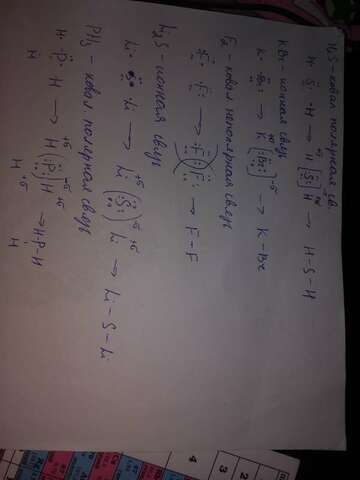 H₂S - ковал полярная св.
H· ·S̈· ·H → H [:S̈:] H → H - S - H
KBr - ионная связь
K· ·B̈r: → K [:B̈r:] → K - Br
F₂ - ковал неполярная связь
:F̈· ·F̈: → :F̈::F̈: → F - F
Li₂S - ионная связь
Li· ·S̈· ·Li → Li⁺ᵟ (:S̈:)⁻ᵟ Li⁺ᵟ → Li - S - Li
PH₃ - ковал полярная связь
H· ·P̈· ·H → H⁺ᵟ (:P̈:)⁻ᵟ H⁺ᵟ → H - P - H
H H⁺ᵟ H
4
3
2